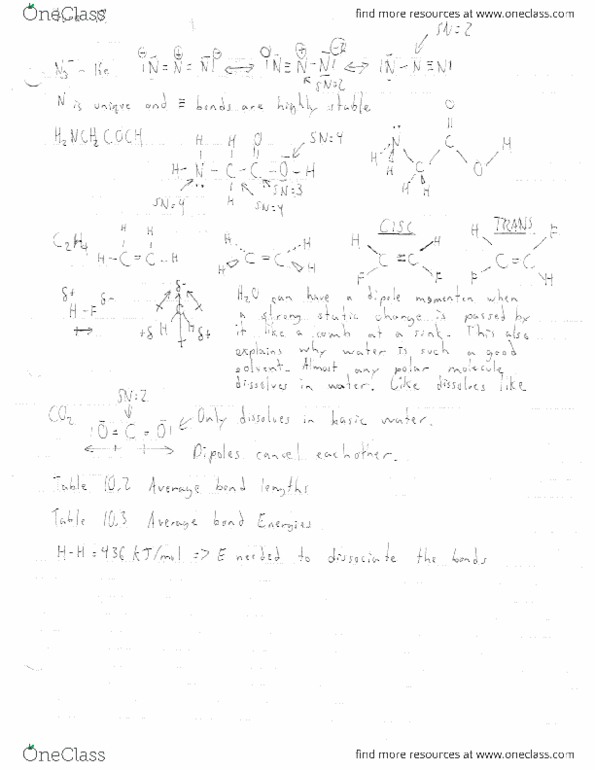 OneClass
find more resources at oneclass.com
SN=2
N3⁻ - Ke
⊖ ⊕ ⊖
|N = N = N| ⟷ |N ≡ N - N| ⟷ |N - N ≡ N|
SN=2
N is unique and ≡ bonds are highly stable
H2NCH2COCH
H H O SN=4
H - N - C - C - O - H
SN=4 H SN=4 SN=3
O
N C H
H C O
H H
C2H4
H H
H - C = C .. H
H C = C H
H H
CISC
H H
C = C
F F
TRANS
H F
C = C
F H
δ+ δ-
H - F
δ-
+δ H H δ+
H2O can have a dipole momenten when
a strong static change is passed by
it like a comb at a sink. This also
explains why water is such a good
solvent. Almost any polar molecule
dissolves in water. Like dissolves like
SN=2
CO2 |O = C = O| Only dissolves in basic water.
Dipoles cancel eachother.
Table 10.2 Average bond lengths
Table 10.3 Average bond Energies
H-H = 436 kJ/mol => E needed to dissociate the bonds
OneClass
find more resources at oneclass.com